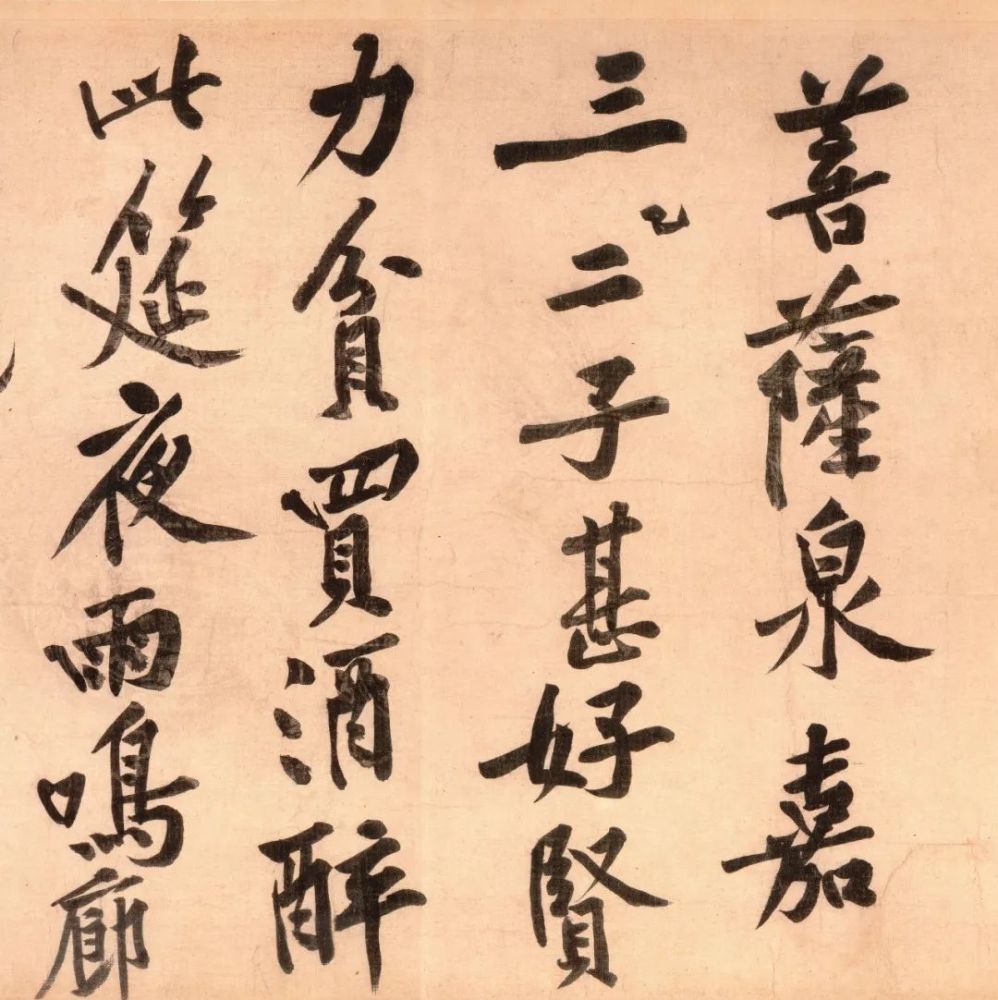 菩薩泉嘉
三二子甚好賢
力貧買酒醉
此筵夜雨鳴廊